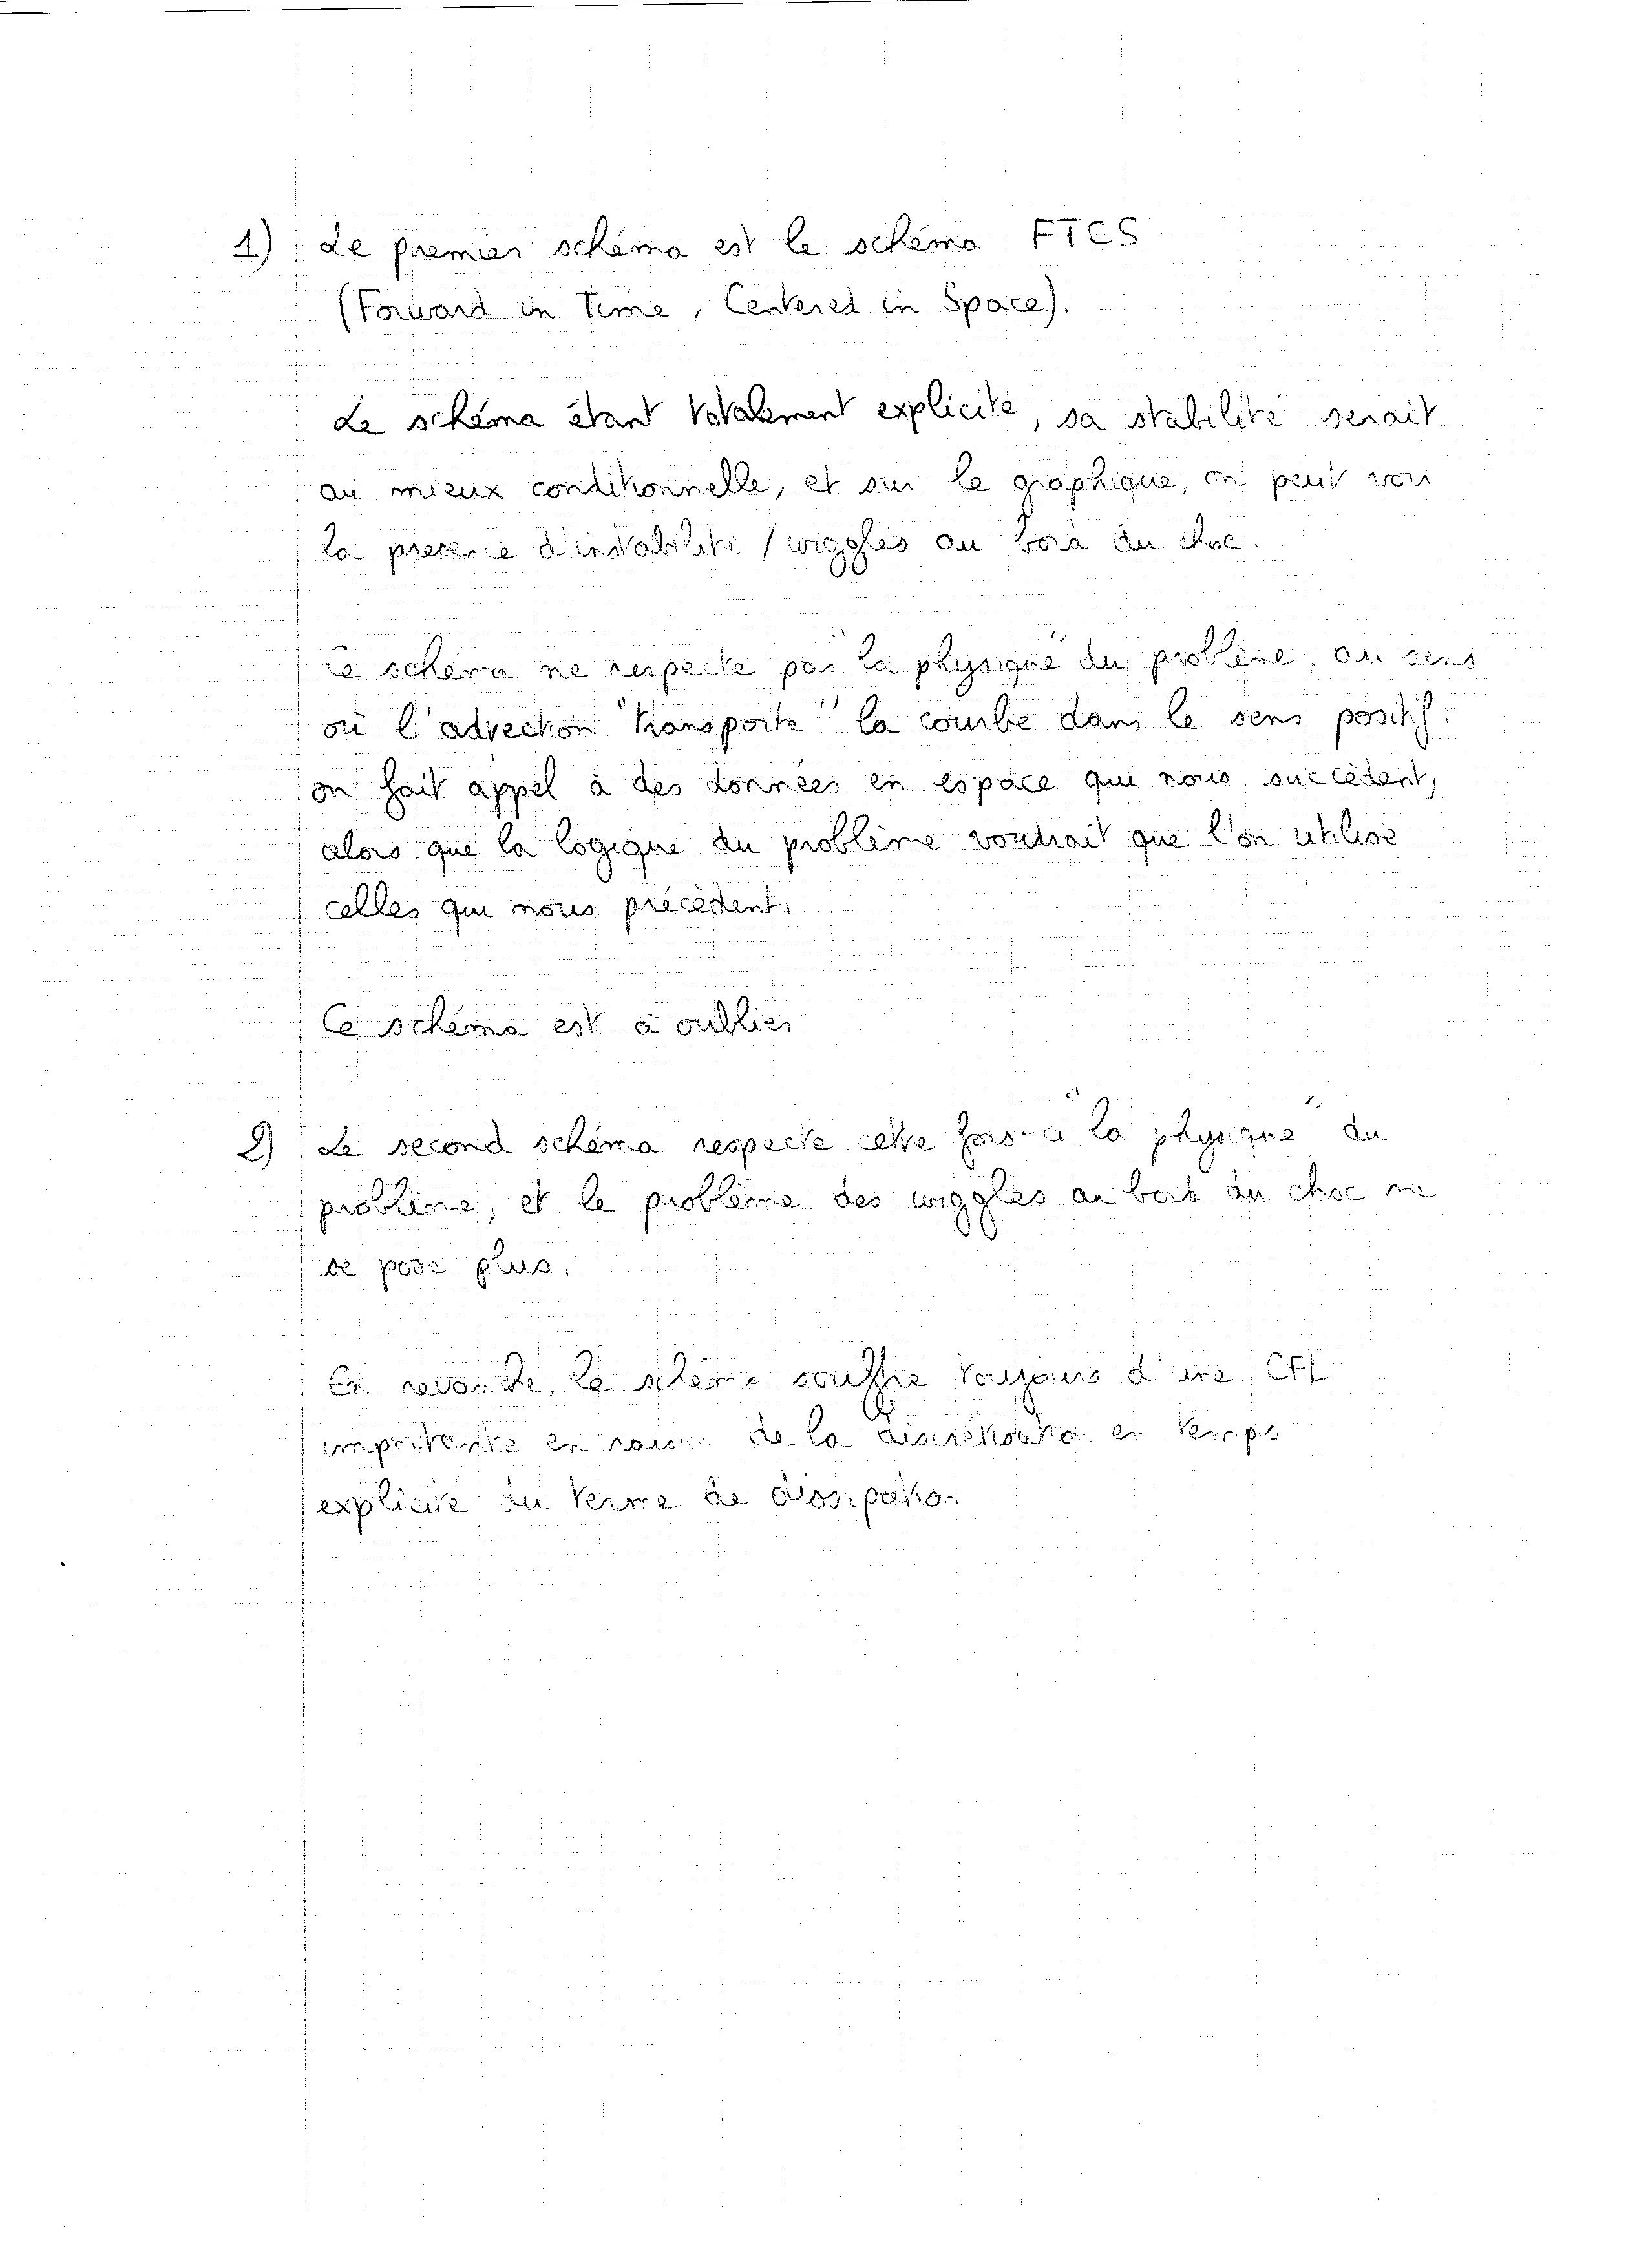 1) Le premier schéma est le schéma FTCS
(Forward in Time, Centered in Space).
Le schéma étant totalement explicite, sa stabilité serait
au mieux conditionnelle, et sur le graphique, on peut voir
la présence d'instabilité / wiggles au bord du choc.
Ce schéma ne respecte pas "la physique" du problème, au sens
où l'advection "transporte" la courbe dans le sens positif :
on fait appel à des données en espace qui nous succèdent,
alors que la logique du problème voudrait que l'on utilise
celles qui nous précèdent.
Ce schéma est à oublier
2) Le second schéma respecte cette fois-ci "la physique" du
problème, et le problème des wiggles au bord du choc ne
se pose plus.
En revanche, le schéma souffre toujours d'une CFL
importante en raison de la discrétisation en temps
explicite du terme de dissipation